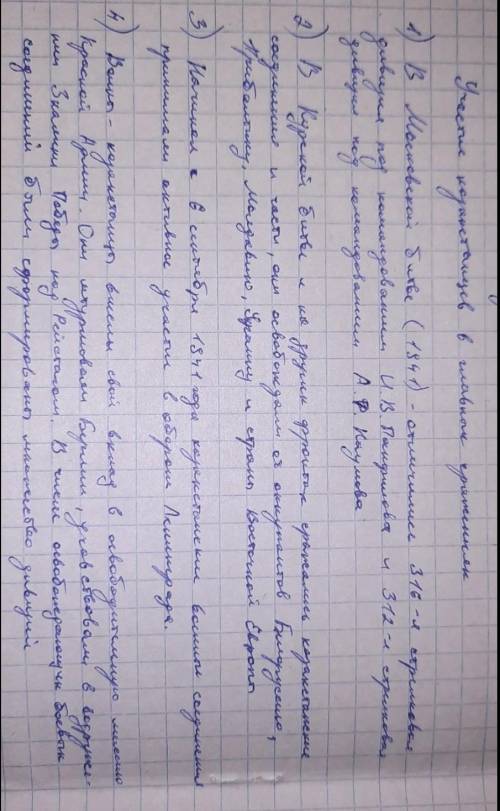 Участие казахстанцев в главном сражениях
1) В Московской битве (1941) - отличились 316-я стрелковая
дивизия под командованием И.В Панфилова и 312-я стрелковая
дивизия под командованием А.Ф Наумова
2) В Курской битве и на других фронтах сражались казахстанские
соединения и части, они освобождали от оккупантов Белоруссию,
Прибалтику, Молдавию, Украину и страны Восточной Европы
3) Начиная с 6 сентября 1941 года казахстанские воины соединения
принимали активное участие в обороне Ленинграда.
4) Воины-казахстанцы внесли свой вклад в освободительную миссию
Красной Армии. Они штурмовали Берлин, участвовали в водруже-
нии Знамени Победы над Рейхстагом. В числе освобождающих боевых
соединений были сформированы множество дивизий